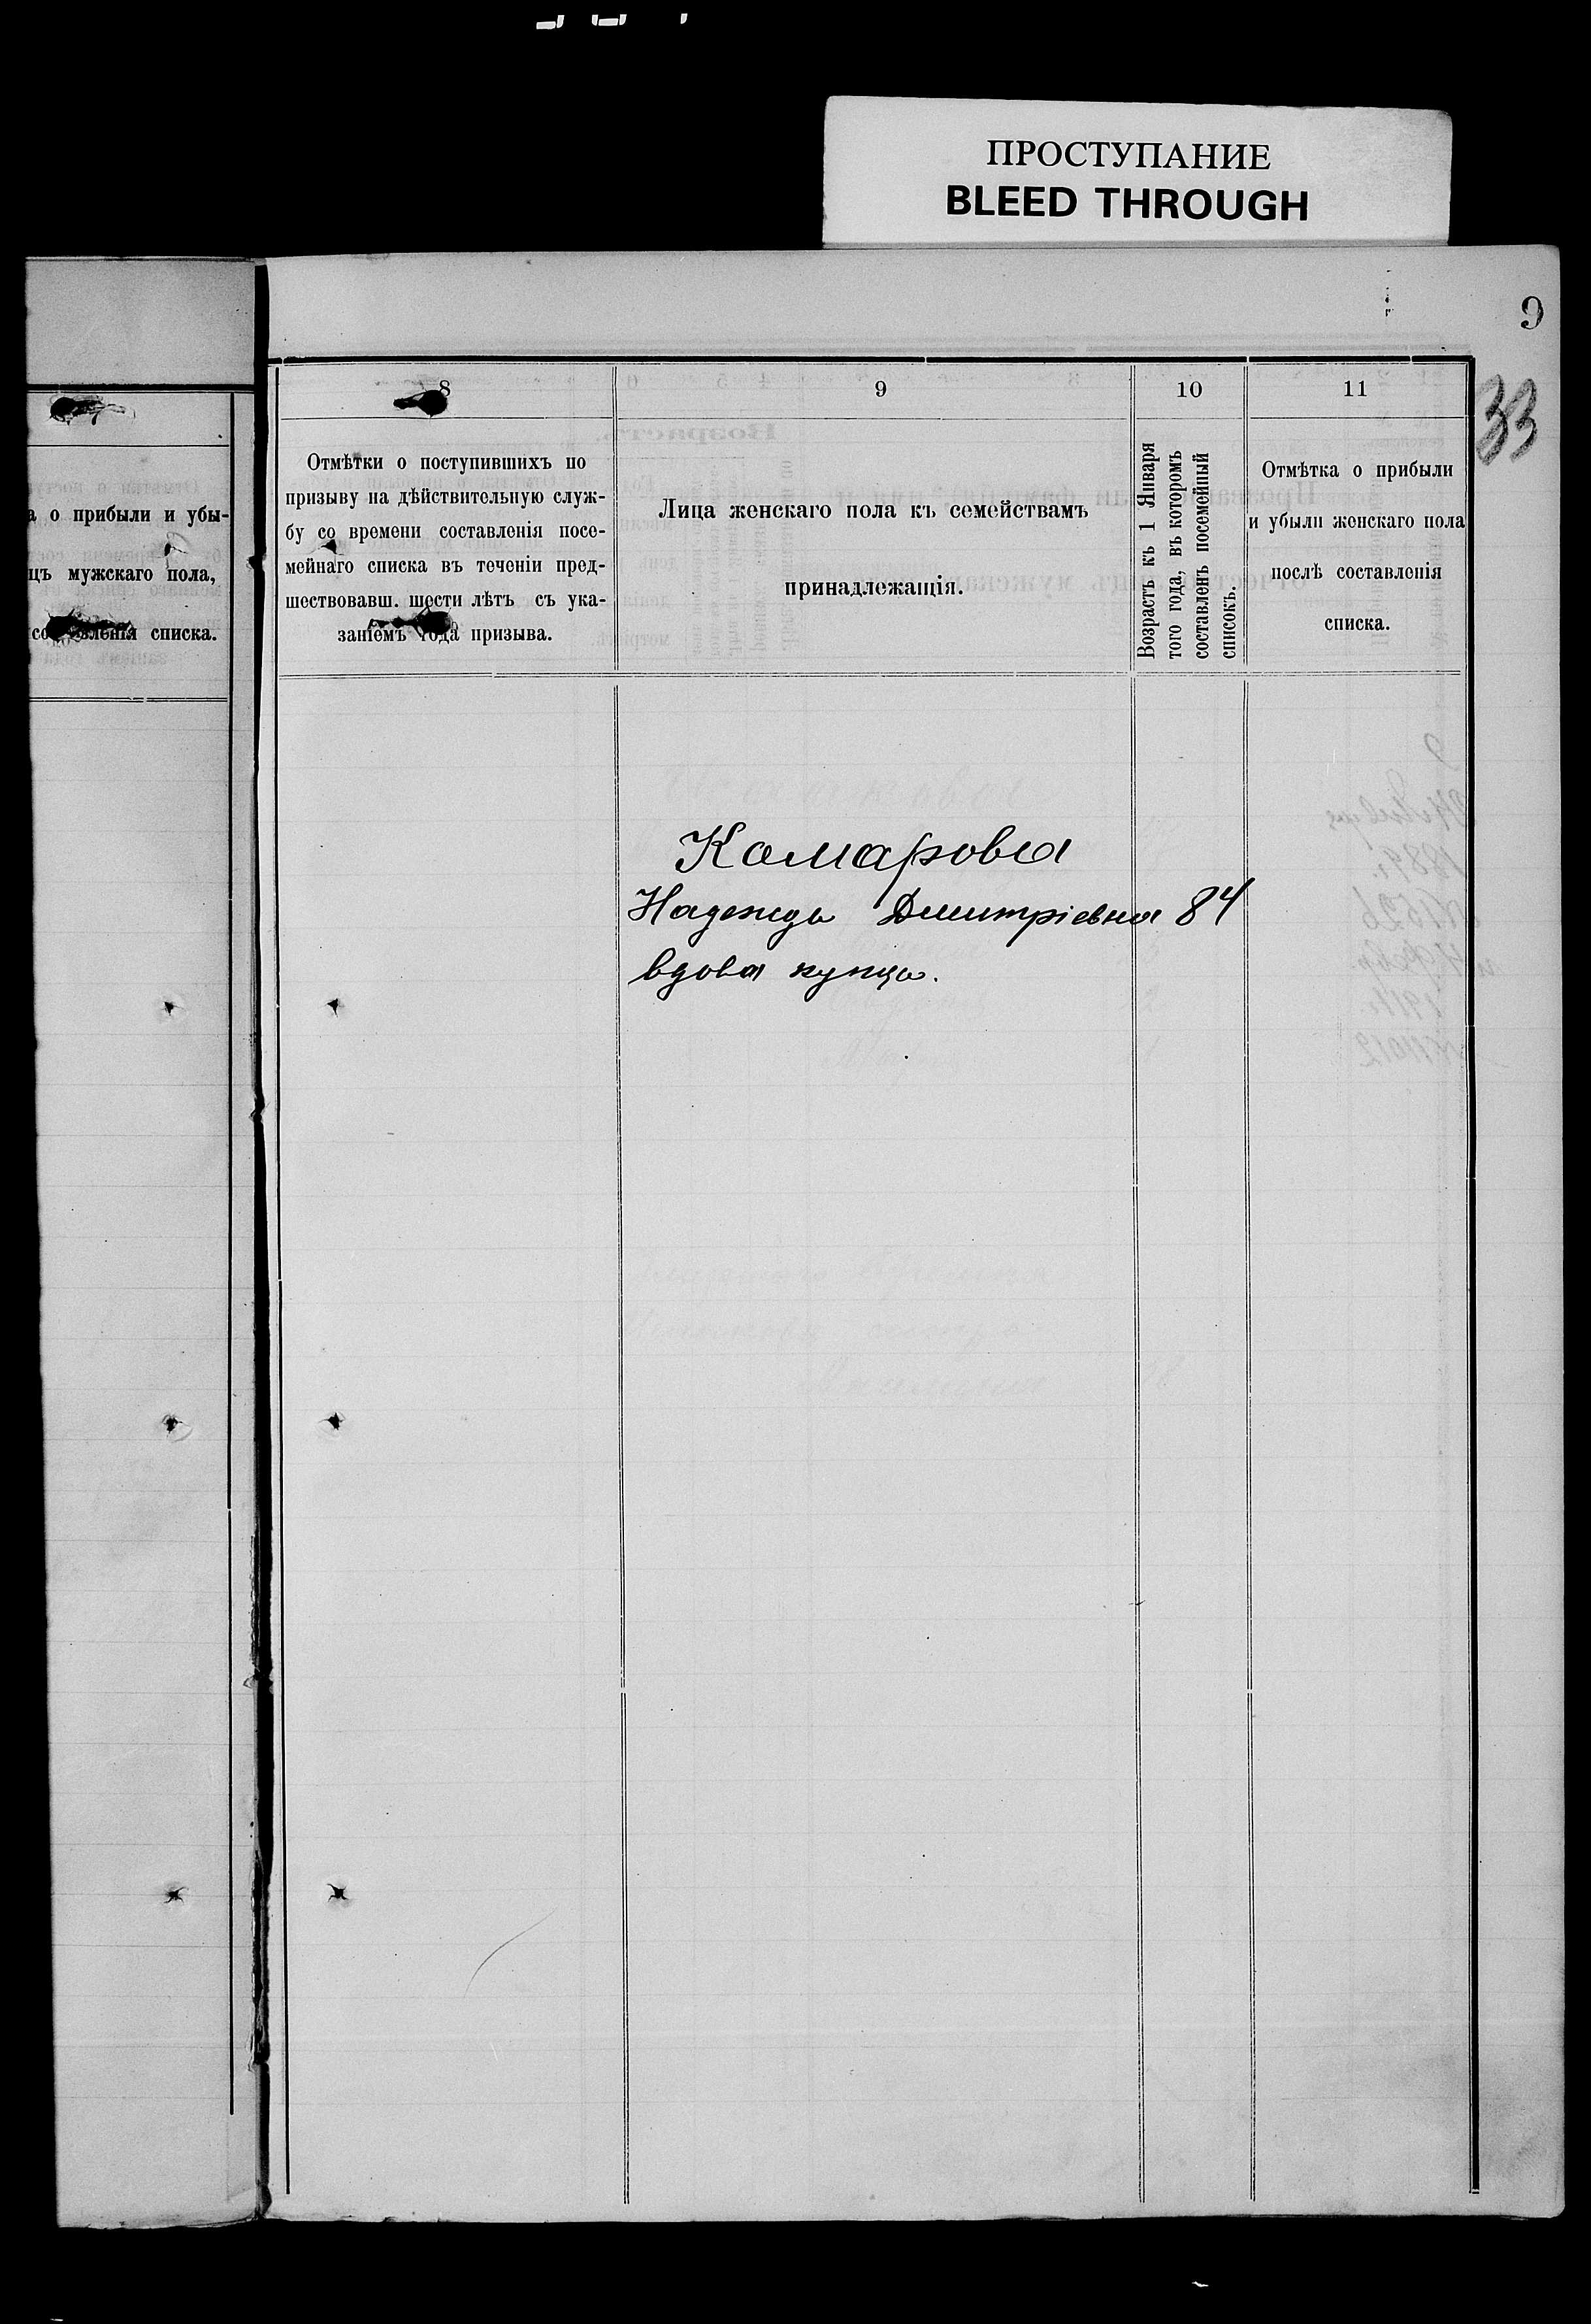 ПРОСТУПАНИЕ
BLEED THROUGH
9
33
7
а о прибыли и убы-
цъ мужскаго пола,
списка.
8
Отмѣтки о поступившихъ по
призыву на дѣйствительную служ-
бу со времени составленія посе-
мейнаго списка въ теченіи пред-
шествовавш. шести лѣтъ съ ука-
заніемъ года призыва.
9
Лица женскаго пола къ семействамъ
принадлежащія.
10
Возрастъ къ 1 Января
того года, въ которомъ
составленъ посемейный
списокъ.
11
Отмѣтка о прибыли
и убыли женскаго пола
послѣ составленія
списка.
Комарова
Надежда Дмитріевна 84
вдова купца.